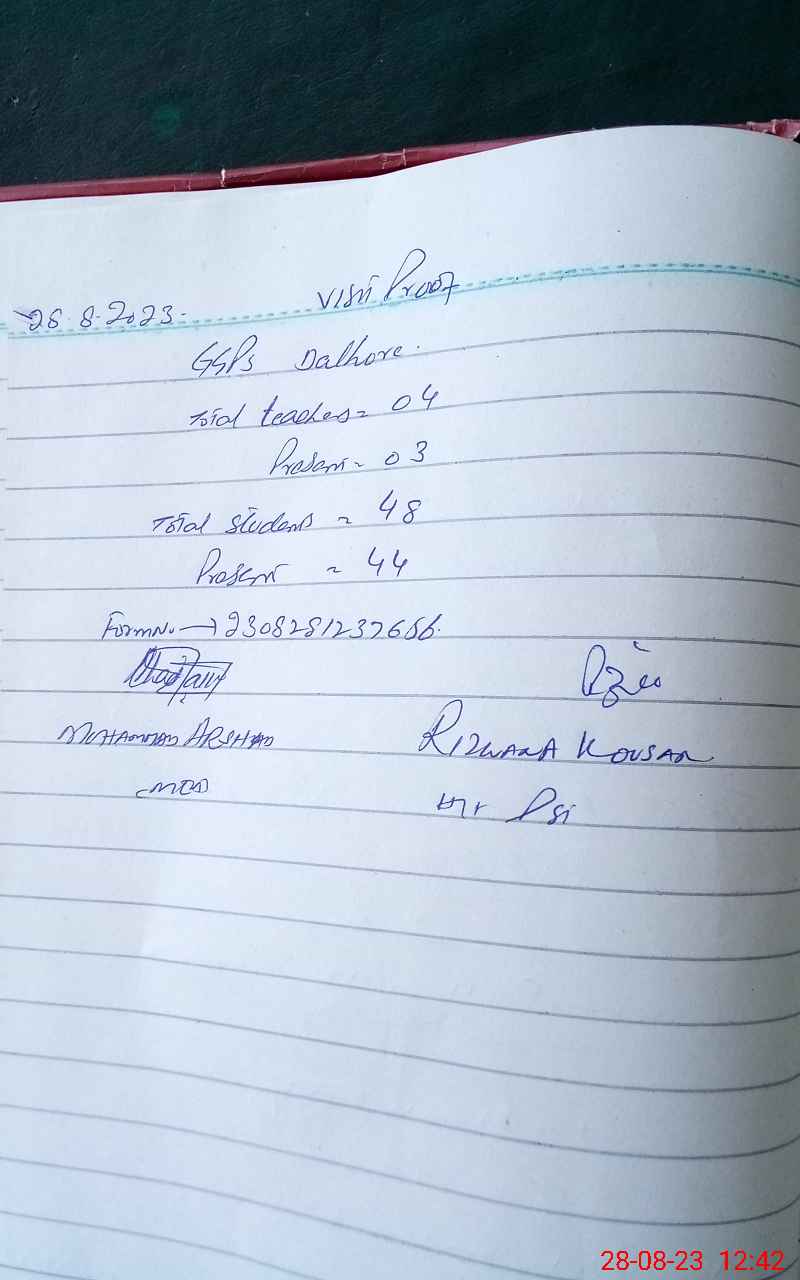 28.8.2023. Visit Proof
GGPS Dalhore.
Total teachers = 04
Present = 03
Total students = 48
Present = 44
Form No. → 230828123
MUHAMMAD ARSHAD
RIZWANA KOUSAR
MEA
Hr Psi
28-08-23 12:42